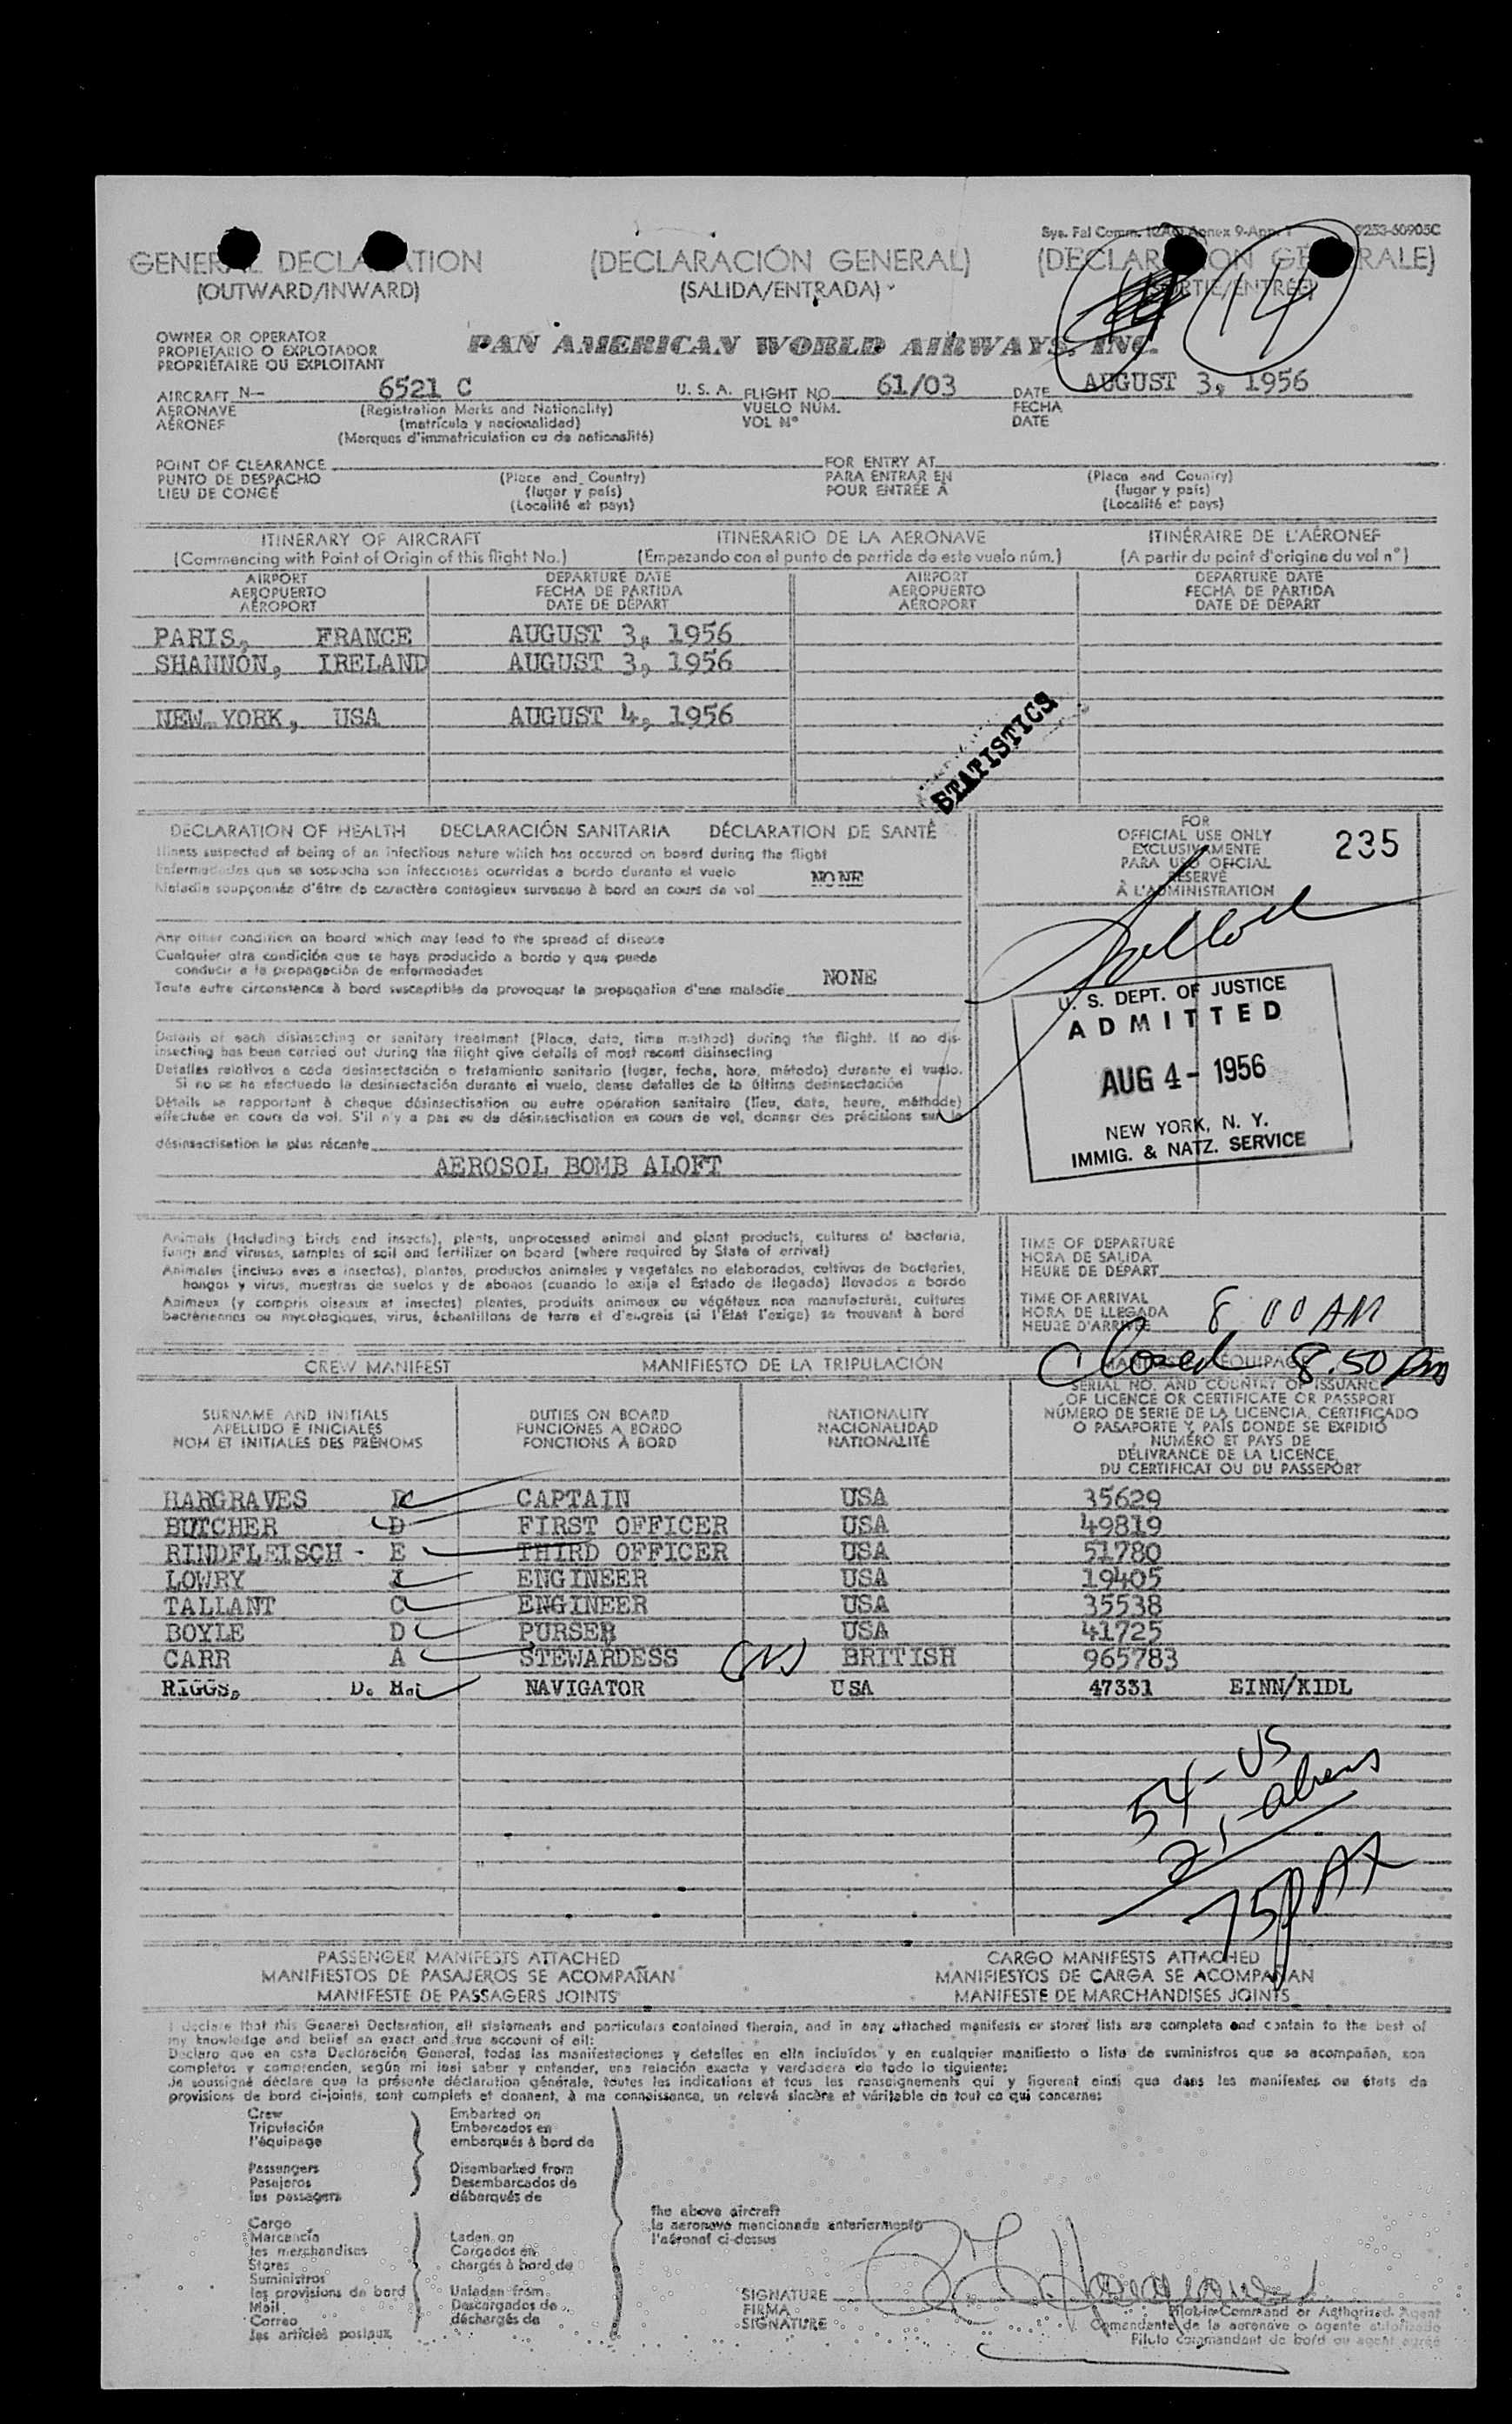 Sys. Fal Comm. ICAO Annex 9-App. 1 9253-50905C
GENERAL DECLARATION (DECLARACIÓN GENERAL) (DECLARATION GÉNÉRALE)
(OUTWARD/INWARD) (SALIDA/ENTRADA) (SORTIE/ENTRÉE)
14
OWNER OR OPERATOR
PROPIETARIO O EXPLOTADOR
PROPRIÉTAIRE OU EXPLOITANT
PAN AMERICAN WORLD AIRWAYS, INC.
AIRCRAFT N— 6521 C U.S.A. FLIGHT NO. 61/03 DATE AUGUST 3, 1956
AERONAVE (Registration Marks and Nationality) VUELO NÚM. FECHA
AÉRONEF (matrícula y nacionalidad) VOL Nº DATE
(Marques d'immatriculation ou de nationalité)
POINT OF CLEARANCE FOR ENTRY AT
PUNTO DE DESPACHO (Place and Country) PARA ENTRAR EN (Place and Country)
LIEU DE CONGÉ (lugar y país) POUR ENTRÉE À (lugar y país)
(Localité et pays) (Localité et pays)
ITINERARY OF AIRCRAFT ITINERARIO DE LA AERONAVE ITINÉRAIRE DE L'AÉRONEF
(Commencing with Point of Origin of this flight No.) (Empezando con el punto de partida de este vuelo núm.) (A partir du point d'origine du vol nº)
AIRPORT DEPARTURE DATE AIRPORT DEPARTURE DATE
AEROPUERTO FECHA DE PARTIDA AEROPUERTO FECHA DE PARTIDA
AÉROPORT DATE DE DÉPART AÉROPORT DATE DE DÉPART
PARIS, FRANCE AUGUST 3, 1956
SHANNON, IRELAND AUGUST 3, 1956
NEW YORK, USA AUGUST 4, 1956
STATISTICS
DECLARATION OF HEALTH DECLARACIÓN SANITARIA DÉCLARATION DE SANTÉ
Illness suspected of being of an infectious nature which has occured on board during the flight
Enfermedades que se sospecha son infecciosas ocurridas a bordo durante el vuelo
Maladie soupçonnée d'être de caractère contagieux survenue à bord en cours de vol NONE
Any other condition on board which may lead to the spread of disease
Cualquier otra condición que se haya producido a bordo y que pueda
conducir a la propagación de enfermedades
Toute autre circonstance à bord susceptible de provoquer la propagation d'une maladie NONE
Details of each disinsecting or sanitary treatment (Place, date, time method) during the flight. If no dis-
insecting has been carried out during the flight give details of most recent disinsecting
Detalles relativos a cada desinsectación o tratamiento sanitario (lugar, fecha, hora, método) durante el vuelo.
Si no se ha efectuado la desinsectación durante el vuelo, dense detalles de la última desinsectación
Détails se rapportant à chaque désinsectisation ou autre opération sanitaire (lieu, date, heure, méthode)
effectuée en cours de vol. S'il n'y a pas eu de désinsectisation en cours de vol, donner des précisions sur la
désinsectisation la plus récente
AEROSOL BOMB ALOFT
FOR
OFFICIAL USE ONLY
EXCLUSIVAMENTE
PARA USO OFICIAL
RÉSERVÉ
À L'ADMINISTRATION
235
U. S. DEPT. OF JUSTICE
ADMITTED
AUG 4 - 1956
NEW YORK, N. Y.
IMMIG. & NATZ. SERVICE
Animals (Including birds and insects), plants, unprocessed animal and plant products, cultures of bacteria,
fungi and viruses, samples of soil and fertilizer on board (where required by State of arrival)
Animales (incluso aves e insectos), plantas, productos animales y vegetales no elaborados, cultivos de bacterias,
hongos y virus, muestras de suelos y de abonos (cuando lo exija el Estado de llegada) llevados a bordo
Animaux (y compris oiseaux et insectes) plantes, produits animaux ou végétaux non manufacturés, cultures
bactériennes ou mycologiques, virus, échantillons de terre et d'engrais (si l'Etat l'exige) se trouvant à bord
TIME OF DEPARTURE
HORA DE SALIDA
HEURE DE DÉPART
TIME OF ARRIVAL
HORA DE LLEGADA
HEURE D'ARRIVÉE 8 00 AM
Closed 8.50 Am
CREW MANIFEST MANIFIESTO DE LA TRIPULACIÓN
SURNAME AND INITIALS DUTIES ON BOARD NATIONALITY SERIAL NO. AND COUNTRY OF ISSUANCE
APELLIDO E INICIALES FUNCIONES A BORDO NACIONALIDAD OF LICENCE OR CERTIFICATE OR PASSPORT
NOM ET INITIALES DES PRÉNOMS FONCTIONS À BORD NATIONALITÉ NÚMERO DE SERIE DE LA LICENCIA, CERTIFICADO
O PASAPORTE Y PAÍS DONDE SE EXPIDIÓ
NUMÉRO ET PAYS DE
DÉLIVRANCE DE LA LICENCE,
DU CERTIFICAT OU DU PASSEPORT
HARGRAVES CAPTAIN USA 35629
BUTCHER D FIRST OFFICER USA 49819
RINDFLEISCH - E THIRD OFFICER USA 51780
LOWRY ENGINEER USA 19405
TALLANT C ENGINEER USA 35538
BOYLE D PURSER USA 41725
CARR A STEWARDESS BRITISH 965783
RIGGS, D. H. NAVIGATOR USA 47331 EINN/KIDL
54 - US
21 - aliens
75 PAX
PASSENGER MANIFESTS ATTACHED CARGO MANIFESTS ATTACHED
MANIFIESTOS DE PASAJEROS SE ACOMPAÑAN MANIFIESTOS DE CARGA SE ACOMPAÑAN
MANIFESTE DE PASSAGERS JOINTS MANIFESTE DE MARCHANDISES JOINTS
I declare that this General Declaration, all statements and particulars contained therein, and in any attached manifests or stores lists are complete and contain to the best of
my knowledge and belief an exact and true account of all:
Declaro que en esta Declaración General, todas las manifestaciones y detalles en ella incluídos y en cualquier manifiesto o lista de suministros que se acompañan, son
completos y comprenden, según mi leal saber y entender, una relación exacta y verdadera de todo lo siguiente:
Je soussigné déclare que la présente déclaration générale, toutes les indications et tous les renseignements qui y figurent ainsi que dans les manifestes ou états de
provisions de bord ci-joints, sont complets et donnent, à ma connaissance, un relevé sincère et véritable de tout ce qui concerne:
Crew Embarked on
Tripulación Embarcados en
l'équipage embarqués à bord de
Passengers Disembarked from
Pasajeros Desembarcados de
les passagers débarqués de
the above aircraft
la aeronave mencionada anteriormente
l'aéronef ci-dessus
Cargo
Mercancía Laden on
les merchandises Cargados en
Stores chargés à bord de
Suministros
les provisions de bord Unladen from
Mail Descargados de
Correo déchargés de
les articles postaux
SIGNATURE
FIRMA
SIGNATURE
Pilot-in-Command or Authorized Agent
Comandante de la aeronave o agente autorizado
Pilote commandant de bord ou agent agréé